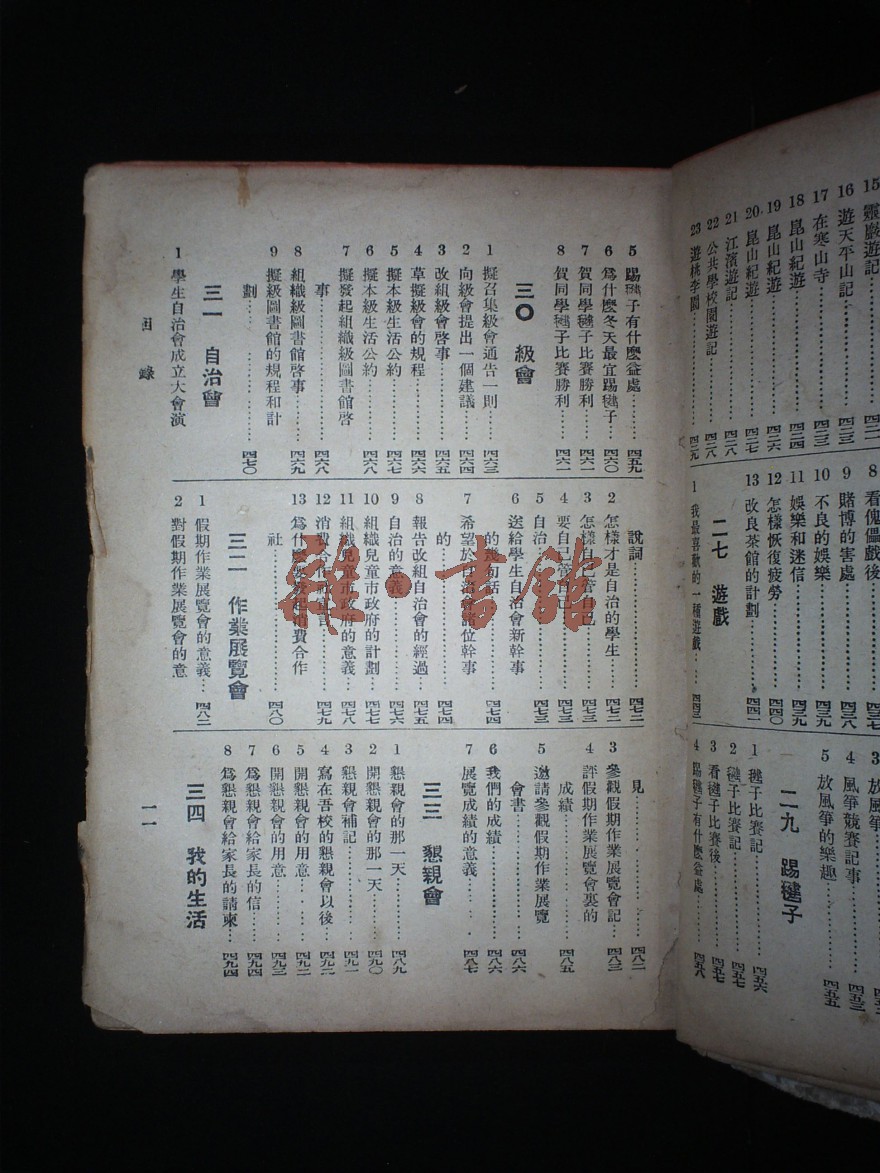 15 靈巖遊記
16 遊天平山記……四二二
17 在寒山寺……四二三
18 崑山紀遊……四二四
19 崑山紀遊……四二六
20 崑山紀遊……四二七
21 江濱遊記……四二八
22 公共學校園遊記……四二八
23 遊桃李園……四二九
8 看傀儡戲後
9 賭博的害處……四三八
10 不良的娛樂……四三九
11 娛樂和迷信……四三九
12 怎樣恢復疲勞……四四〇
13 改良茶館的計劃……四四一
二七 遊戲
1 我最喜歡的一種遊戲……四四三
3 放風箏
4 風箏競賽記事……四五三
5 放風箏的樂趣……四五五
二九 踢毽子
1 毽子比賽記……四五六
2 毽子比賽記……四五七
3 看毽子比賽後……四五七
4 踢毽子有什麼益處……四五八
5 踢毽子有什麼益處……四五九
6 爲什麼冬天最宜踢毽子……四六〇
7 賀同學毽子比賽勝利……四六一
8 賀同學毽子比賽勝利……四六二
三〇 級會
1 擬召集級會通告一則……四六三
2 向級會提出一個建議……四六四
3 改組級會啓事……四六五
4 草擬級會的規程……四六六
5 擬本級生活公約……四六七
6 擬本級生活公約……四六八
7 擬發起組織級圖書館啓
事……四六八
8 組織級圖書館啓事……四六九
9 擬級圖書館的規程和計
劃……四七〇
三一 自治會
1 學生自治會成立大會演
目錄
說詞……四七二
2 怎樣才是自治的學生……四七二
3 怎樣自己管自己……四七三
4 要自己管自己……四七三
5 自治……四七三
6 送給學生自治會新幹事
的幾句話……四七四
7 希望於自治會諸位幹事
的……四七四
8 報告改組自治會的經過……四七五
9 自治的意義……四七六
10 組織兒童市政府的計劃……四七七
11 組織兒童市政府的意義……四七八
12 消費合作社宣言……四七九
13 爲什麼要發起消費合作
社……四八〇
三二 作業展覽會
1 假期作業展覽會的意義……四八二
2 對假期作業展覽會的意
見……四八二
3 參觀假期作業展覽會記……四八三
4 評假期作業展覽會裏的
成績……四八五
5 邀請參觀假期作業展覽
會書……四八六
6 我們的成績……四八六
7 展覽成績的意義……四八七
三三 懇親會
1 懇親會的那一天……四八九
2 開懇親會的那一天……四九〇
3 懇親會補記……四九一
4 寫在吾校的懇親會以後……四九二
5 開懇親會的用意……四九二
6 開懇親會的用意……四九三
7 爲懇親會給家長的信……四九四
8 爲懇親會給家長的請柬……四九四
三四 我的生活
一一